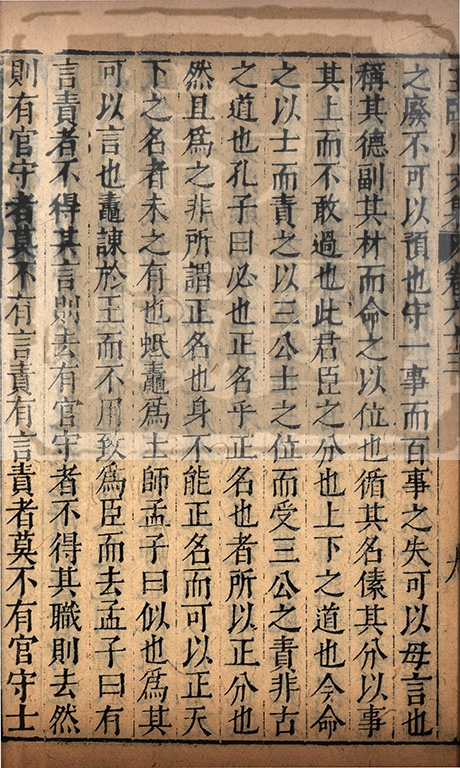 之廢不可以預也守一事而百事之失可以毋言也
稱其德副其材而命之以位也循其名傃其分以事
其上而不敢過也此君臣之分也上下之道也今命
之以士而責之以三公士之位而受三公之責非古
之道也孔子曰必也正名乎正名也者所以正分也
然且爲之非所謂正名也身不能正名而可以正天
下之名者未之有也蚳鼃爲士師孟子曰似也為其
可以言也鼃諌於王而不用致爲臣而去孟子曰有
言責者不得其言則去有官守者不得其職則去然
則有官守者莫不有言責有言責者莫不有官守士